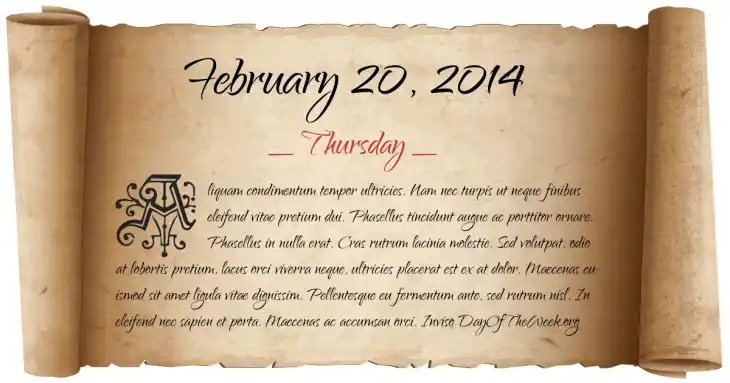 February 20, 2014
_ Thursday _
Aliquam condimentum tempor ultricies. Nam nec turpis ut neque finibus
eleifend vitae pretium dui. Phasellus tincidunt augue ac porttitor ornare.
Phasellus in nulla erat. Cras rutrum lacinia molestie. Sed volutpat, odio
at lobortis pretium, lacus orci viverra neque, ultricies placerat est ex at dolor. Maecenas eu-
ismod sit amet ligula vitae dignissim. Pellentesque eu fermentum ante, sed rutrum nisl. In
eleifend nec sapien et porta. Maecenas ac accumsan orci. Inviso DayOfTheWeek.org